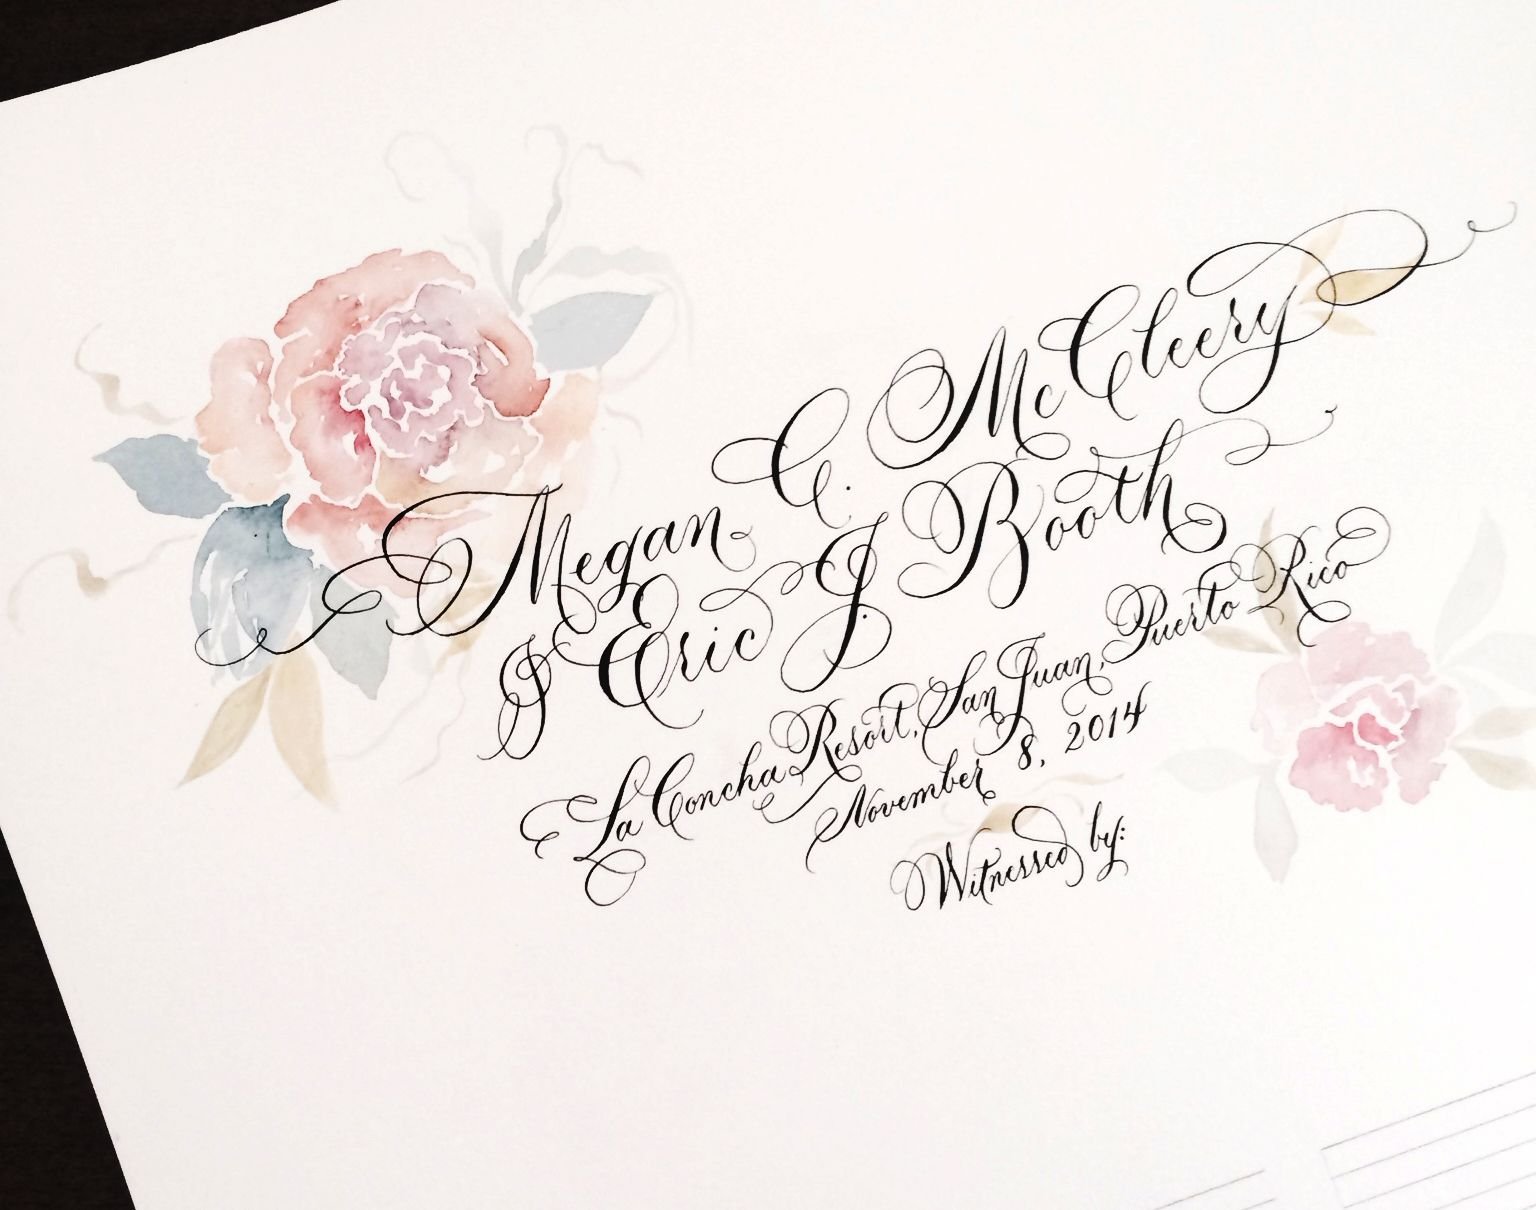 Megan C. McCleery
& Eric J. Booth
La Concha Resort, San Juan, Puerto Rico
November 8, 2014
Witnessed by: